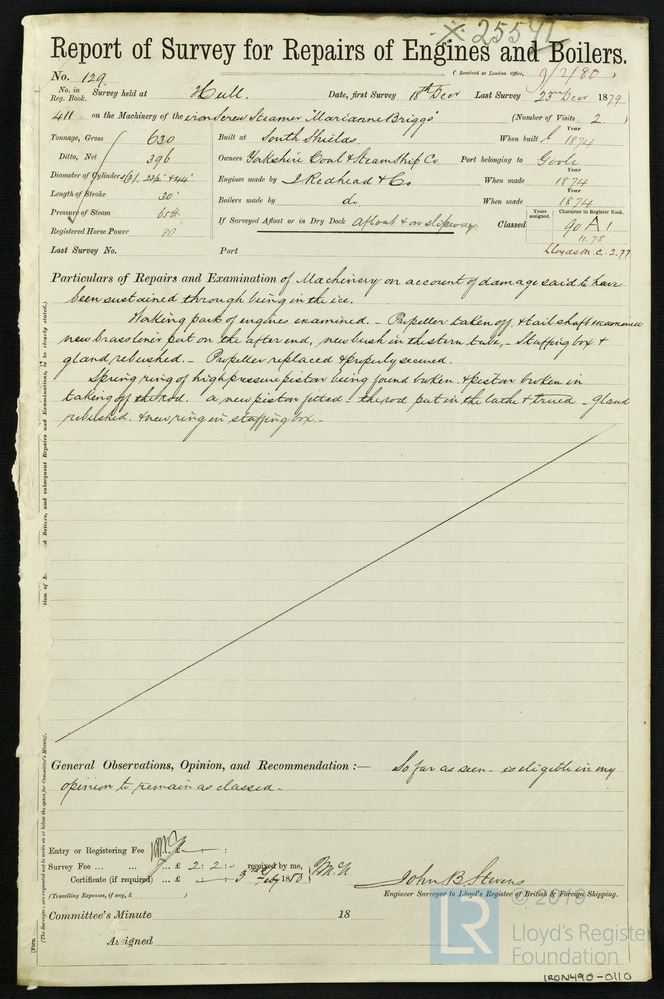 25541
Report of Survey for Repairs of Engines and Boilers.
No. 129. ( Received at London Office, 9/2/80 )
No. in Reg. Book. Survey held at Hull. Date, first Survey 18th Decr Last Survey 23rd Decr 1879
411 on the Machinery of the iron Screw Steamer "Marianne Briggs" (Number of Visits 2. )
Tonnage, Gross 630 Built at South Shields When built Year 1874
Ditto, Net 396 Owners Yorkshire Coal & Steamship Co Port belonging to Goole
Diameter of Cylinders 23½" & 44" Engines made by J Redhead & Co When made Year 1874
Length of Stroke 30" Boilers made by do. When made Year 1874
Pressure of Steam 65 lb If Surveyed Afloat or in Dry Dock Afloat & on slipway. Classed Years assigned. Character in Register Book. 90 A 1
Registered Horse Power 80 11.78
Last Survey No. Port Lloyds M.C. 2.77
Particulars of Repairs and Examination of Machinery on account of damage said to have
been sustained through being in the ice.
Working parts of engines examined. - Propeller taken off & tail shaft examined
new brass liner put on the after end, new bush in the stern tube, - Stuffing box &
gland rebushed. - Propeller replaced & properly secured.
Spring ring of high pressure piston being found broken. & piston broken in
taking off the rod. a new piston fitted - the rod put in the lathe & trued - gland
rebushed. & new ring in stuffing box. -
General Observations, Opinion, and Recommendation :— So far as seen - is eligible in my
opinion to remain as classed -
Entry or Registering Fee £ - : :
Survey Fee ... ... £ 2 : 2 : 0 received by me,
Certificate (if required) ... £ - : - : 3rd Feby 1880
(Travelling Expenses, if any, £ )
John B. Stevens
Engineer Surveyor to Lloyd's Register of British & Foreign Shipping.
Committee's Minute 18
Assigned
LR © 2019
Lloyd's Register
Foundation
IRON490-0110